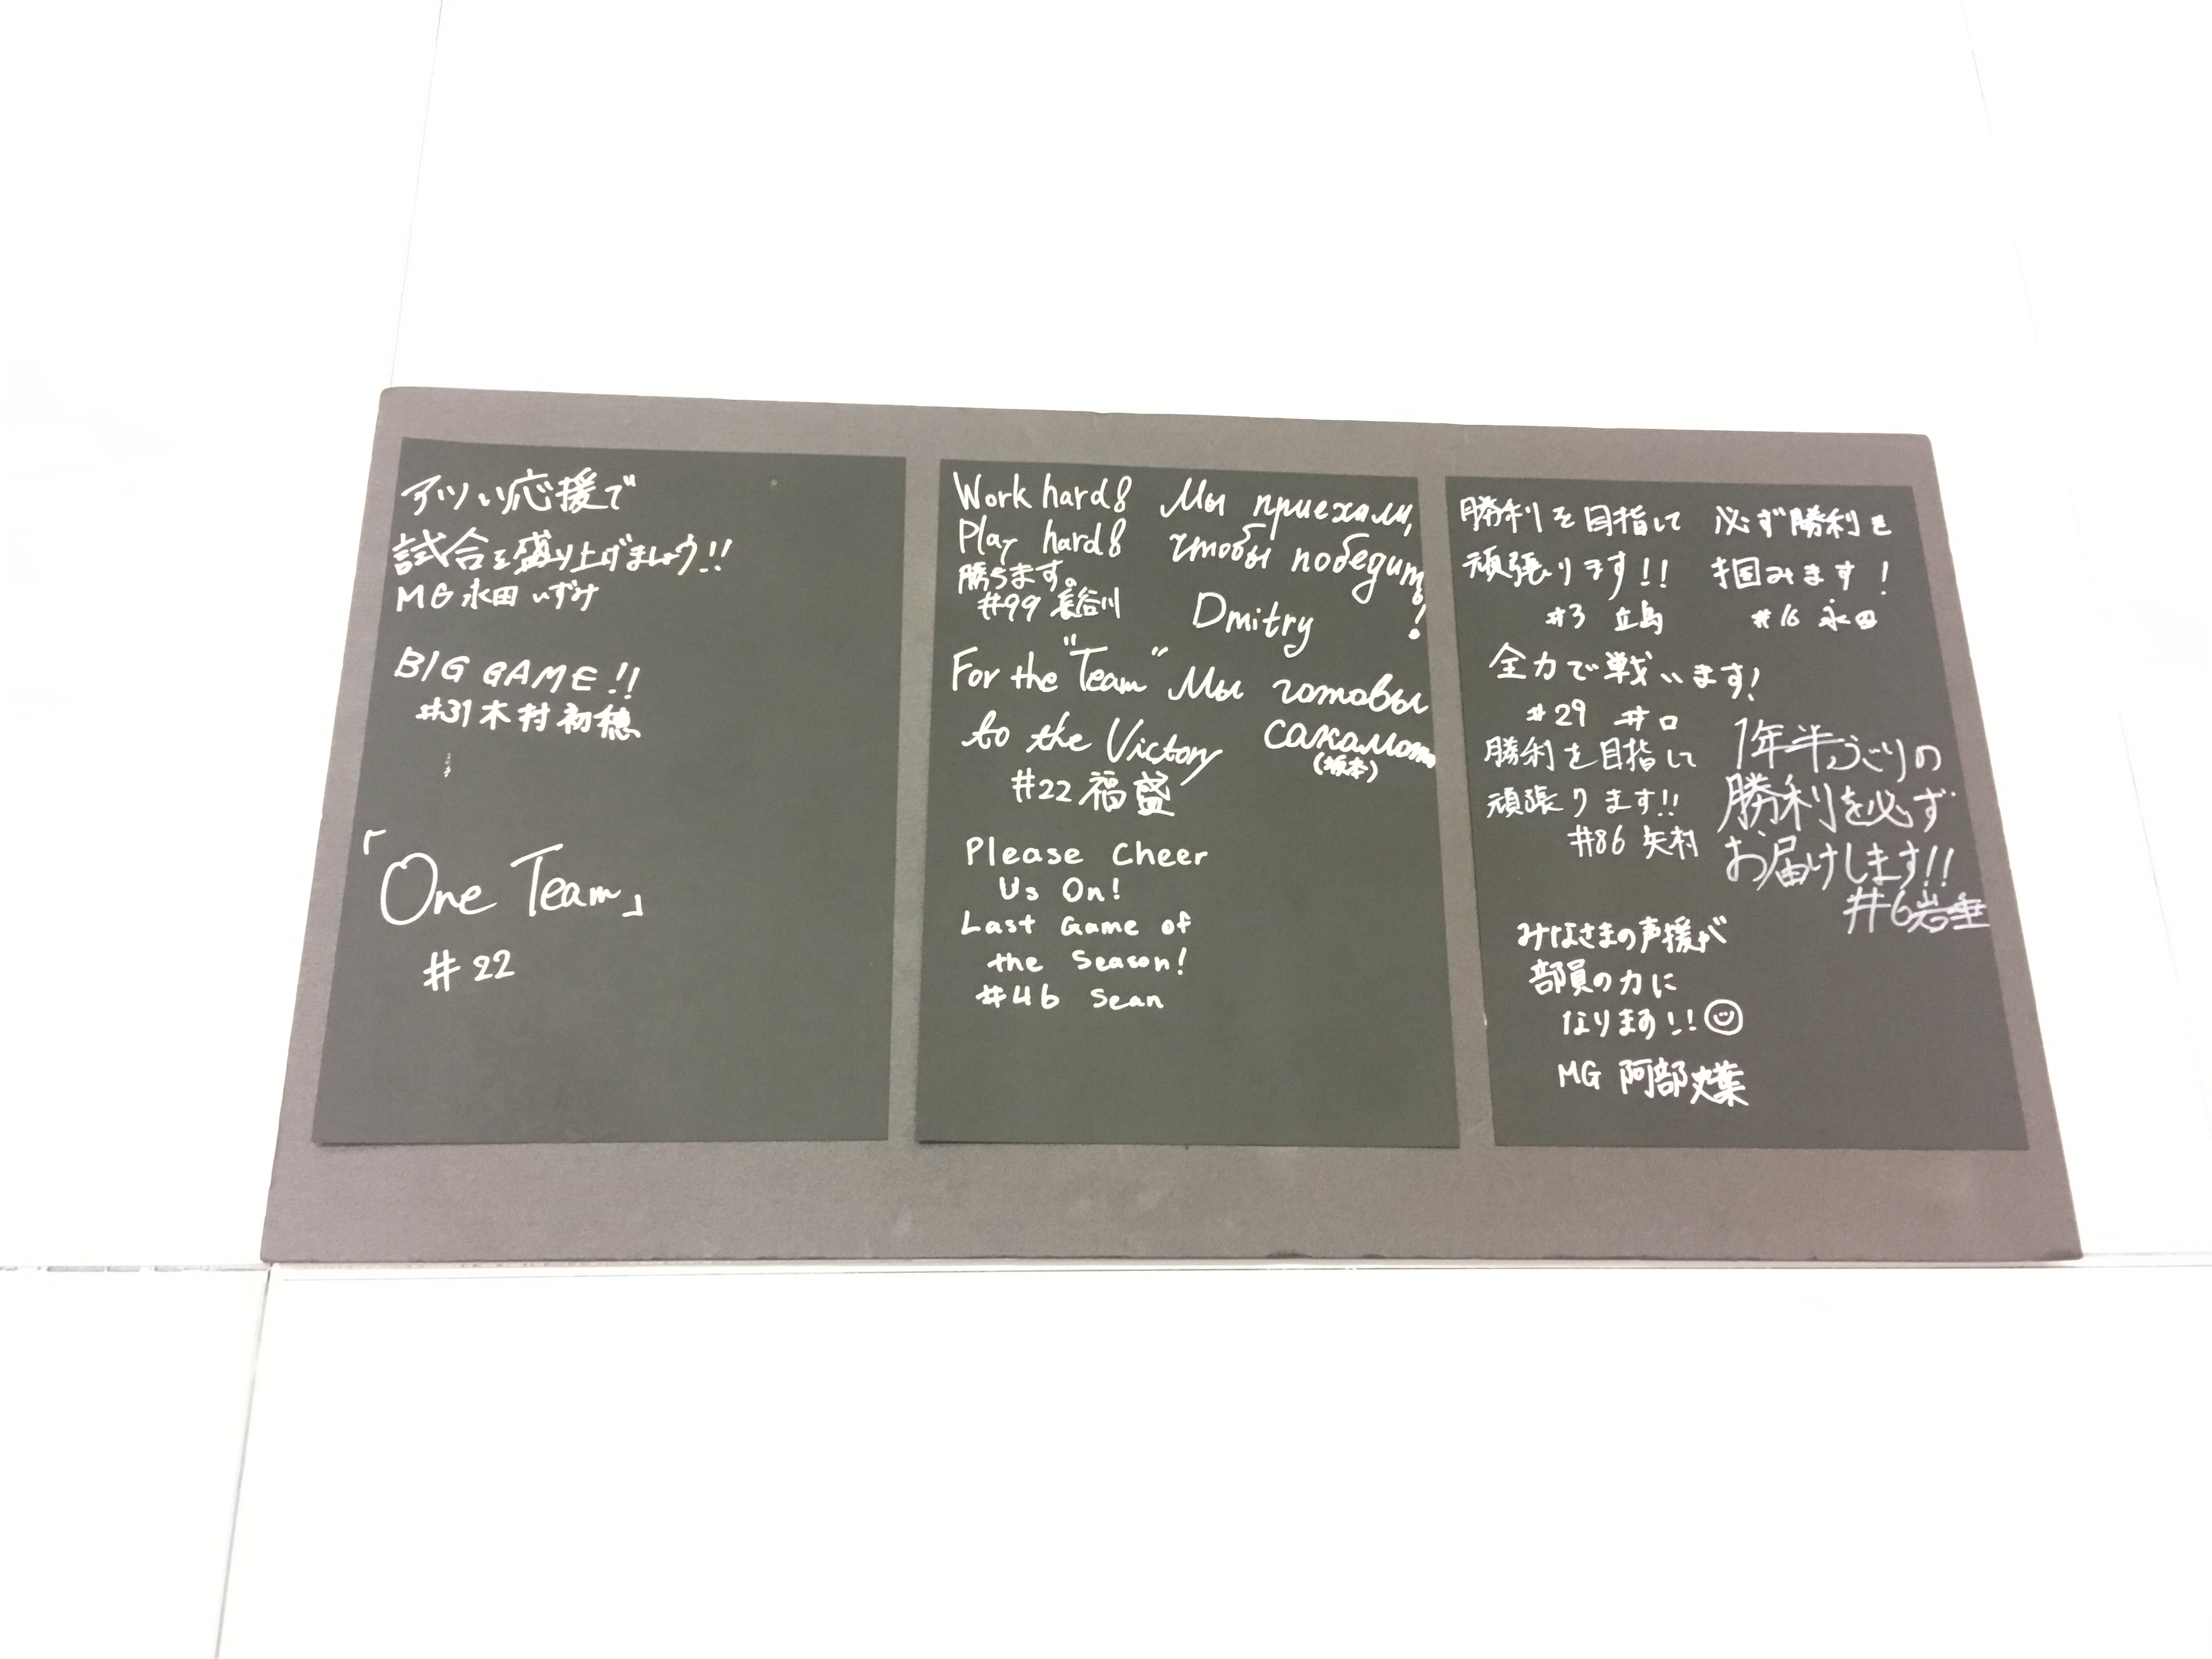 アツい応援で
試合を盛り上げましょう!!
MG 永田 いずみ
BIG GAME!!
#31 木村 初穂
「One Team」
#22
Work hard &
Play hard &
勝ちます。
#99 長谷川
Мы приехали,
чтобы победить!
Dmitry
For the "Team"
to the Victory
#22 福盛
Мы готовы
Сакамото
(坂本)
Please Cheer
Us On!
Last Game of
the Season!
#46 Sean
勝利を目指して
頑張ります!!
#3 立島
必ず勝利を
掴みます!
#16 永田
全力で戦います!
#29 井口
勝利を目指して
頑張ります!!
#86 矢村
1年半ぶりの
勝利を必ず
お届けします!!
#6 岩垂
みなさまの声援が
部員の力に
なります!!
MG 阿部